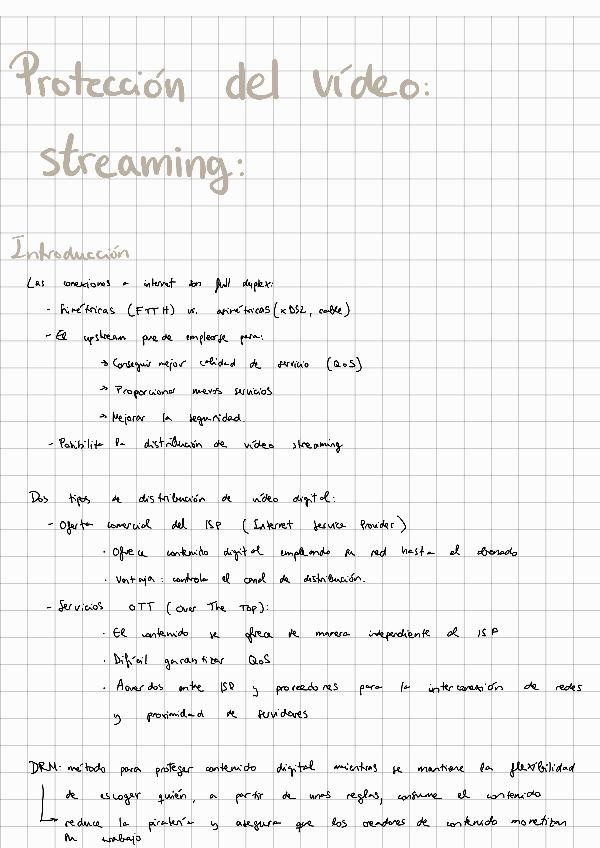 Protección del vídeo:
streaming:
Introducción
Las conexiones a internet son full duplex:
- Simétricas (FTTH) vs. asimétricas (xDSL, cable)
- El upstream puede emplearse para:
→ Conseguir mejor calidad de servicio (QoS)
→ Proporcionar nuevos servicios
→ Mejorar la seguridad.
- Posibilita la distribución de vídeo streaming
Dos tipos de distribución de vídeo digital:
- Oferta comercial del ISP (Internet Service Provider)
· Ofrece contenido digital empleando su red hasta el abonado
· Ventaja: controla el canal de distribución.
- Servicios OTT (Over The Top):
· El contenido se ofrece de manera independiente al ISP
· Difícil garantizar QoS
· Acuerdos entre ISP y proveedores para la interconexión de redes
y proximidad de servidores
DRM: método para proteger contenido digital mientras se mantiene la flexibilidad
de escoger quién, a partir de unas reglas, consume el contenido
reduce la piratería y asegura que los creadores de contenido monetizan
su trabajo